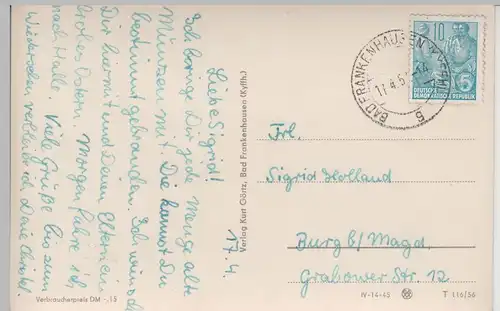 17.4.
Liebe Sigrid!
Ich bringe Dir jede Menge alte
Münzen mit. Die kannst Du
bestimmt gebrauchen. Ich wünsche
Dir hiermit und Deinen Eltern ein
frohes Ostern. Morgen fahre ich
nach Halle. Viele Grüße bis zum
Wiedersehen verbleibt d. Deine Christel.
Verbraucherpreis DM -.15
Verlag Kurt Görtz, Bad Frankenhausen (Kyffh.)
BAD FRANKENHAUSEN
17.4.5
b
10
5
DEUTSCHE
DEMOKRATISCHE REPUBLIK
Frl.
Sigrid Holland
Burg b/Magd.
Grabower Str. 12
IV-14-45
T 116/56